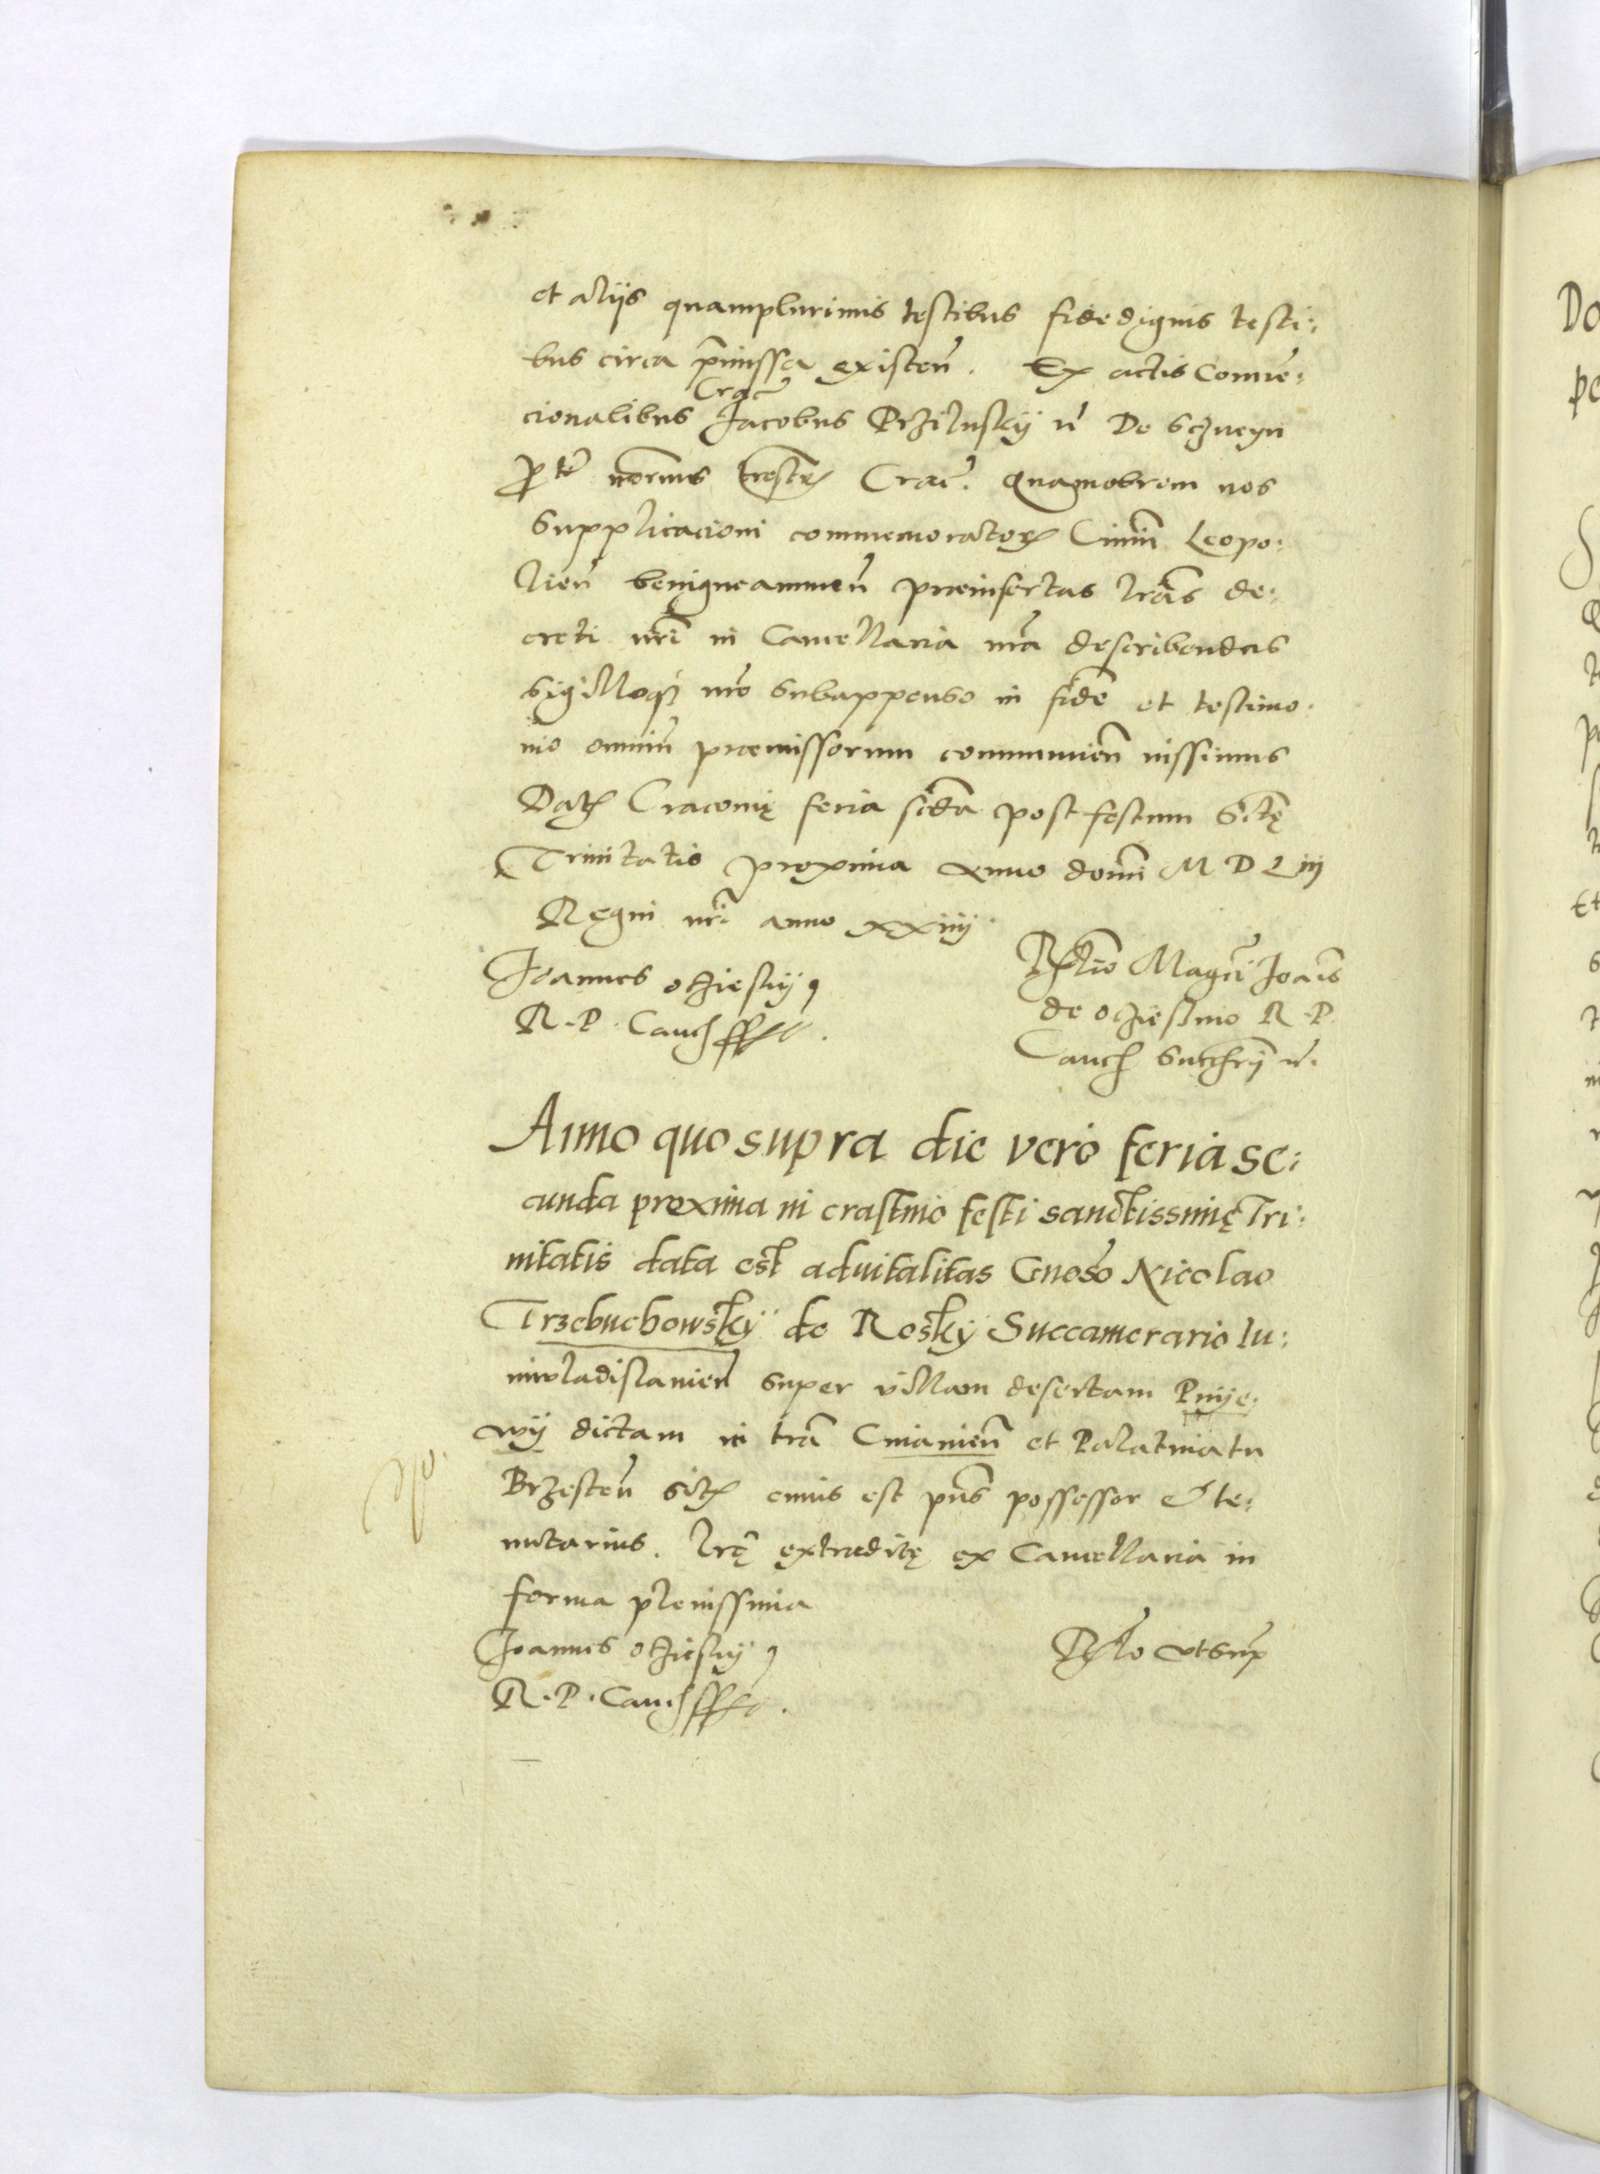 et alijs quamplurimis testibus fidedignis testi:
bus circa p̄missa existeñ. Ex actis Conuē:
Crac̄
cionalibus Jacobus Przilusky n̄ De Sczueyn
p te nōrius trēstrꝭ Crac̄. Quamobrem nos
Supplicacioni commemoratorꝭ Ciuiū Leopo:
lieñ benigne annueñ praeinsertas lrās de:
creti nrī in Cancellaria nrā describendas
Sigilloqꝫ nrō Subappenso in fidē et testimo:
nio omniū praemissorum communieñ iussimus
Datꝭ Cracouię feria scđa post festum Sctę
Trinitatis proxima Anno domī M D Liij
Regni nrī anno xxiiij
Joannes ocziesky
R. P. Canc̄ sst.
Rlatio Magcī Joāis
de ocziesino R. P.
Canc̄
Anno quo supra die vero feria se:
cunda proxima in crastino festi sanctissimę Tri:
nitatis data est aduitalitas Gnoso Nicolao
Trzebuchowsky de Rosky Succamerario Iu:
niwladislauieñ super villam desertam Pnije:
wij dictam in trā Cuiauieñ et Palatinatu
Brzesteñ Sitꝭ cuius est pñs possessor & te:
nutarius. Lrę extraditę ex Cancellaria in
forma plenissima
Joannes ocziesky
R. P. Canc̄ sst.
Rlo vt sup